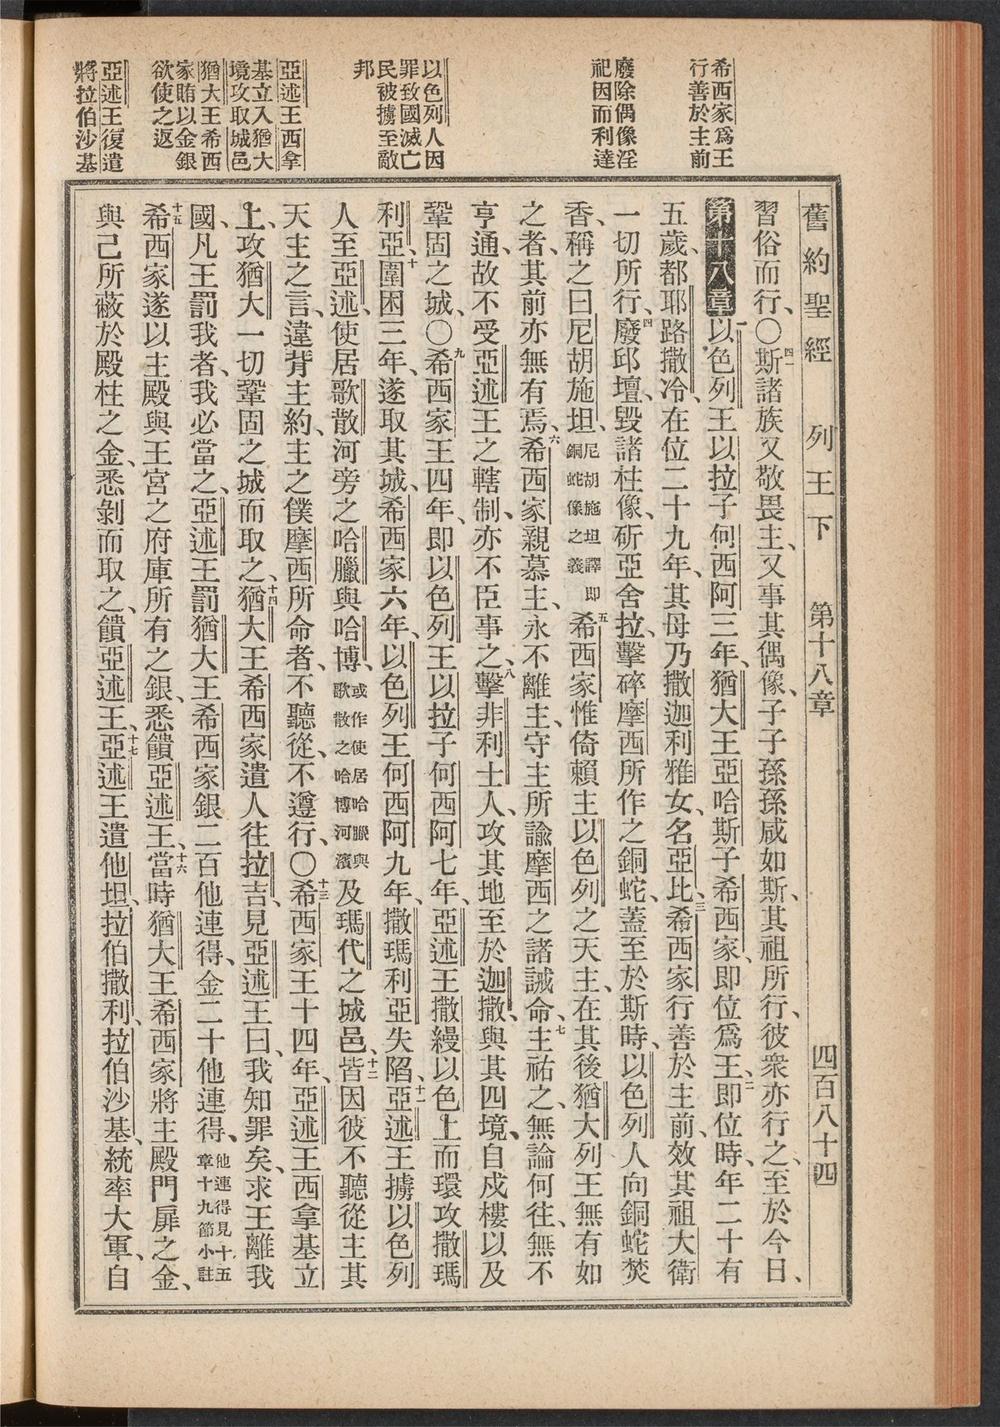 希西家爲王
行善於主前
廢除偶像淫
祀因而利達
以色列人因
罪致國滅亡
民被擄至敵
邦
亞述王西拿
基立入猶大
境攻取城邑
猶大王希西
家賄以金銀
欲使之返
亞述王復遣
將拉伯沙基
舊約聖經 列王下 第十八章 四百八十四
習俗而行、〇四一斯諸族又敬畏主、又事其偶像、子子孫孫咸如斯、其祖所行、彼衆亦行之、至於今日、
第十八章一以色列王以拉子何西阿三年、猶大王亞哈斯子希西家、卽位爲王、二卽位時、年二十有
五歲、都耶路撒冷、在位二十九年、其母乃撒迦利雅女、名亞比、三希西家行善於主前、效其祖大衛
一切所行、四廢邱壇、毀諸柱像、斫亞舍拉、擊碎摩西所作之銅蛇、蓋至於斯時、以色列人向銅蛇焚
香、稱之曰尼胡施坦、尼胡施坦譯卽銅蛇像之義五希西家惟倚賴主以色列之天主、在其後猶大列王無有如
之者、其前亦無有焉、六希西家親慕主、永不離主、守主所諭摩西之諸誡命、七主祐之、無論何往、無不
亨通、故不受亞述王之轄制、亦不臣事之、八擊非利士人、攻其地至於迦撒、與其四境、自戍樓以及
鞏固之城、〇九希西家王四年、卽以色列王以拉子何西阿七年、亞述王撒縵以色上而環攻撒瑪
利亞、十圍困三年、遂取其城、希西家六年、以色列王何西阿九年、撒瑪利亞失陷、十一亞述王擄以色列
人至亞述、使居歌散河旁之哈臘與哈博、或作使居哈臘與歌散之哈博河濱及瑪代之城邑、十二皆因彼不聽從主其
天主之言、違背主約、主之僕摩西所命者、不聽從、不遵行、〇十三希西家王十四年、亞述王西拿基立
上、攻猶大一切鞏固之城而取之、十四猶大王希西家遣人往拉吉、見亞述王曰、我知罪矣、求王離我
國、凡王罰我者、我必當之、亞述王罰猶大王希西家銀二百他連得、金二十他連得、他連得見十五章十九節小註
十五希西家遂以主殿與王宮之府庫所有之銀、悉饋亞述王、十六當時猶大王希西家將主殿門扉之金、
與己所蔽於殿柱之金、悉剝而取之、饋亞述王、十七亞述王遣他坦、拉伯撒利、拉伯沙基、統率大軍、自